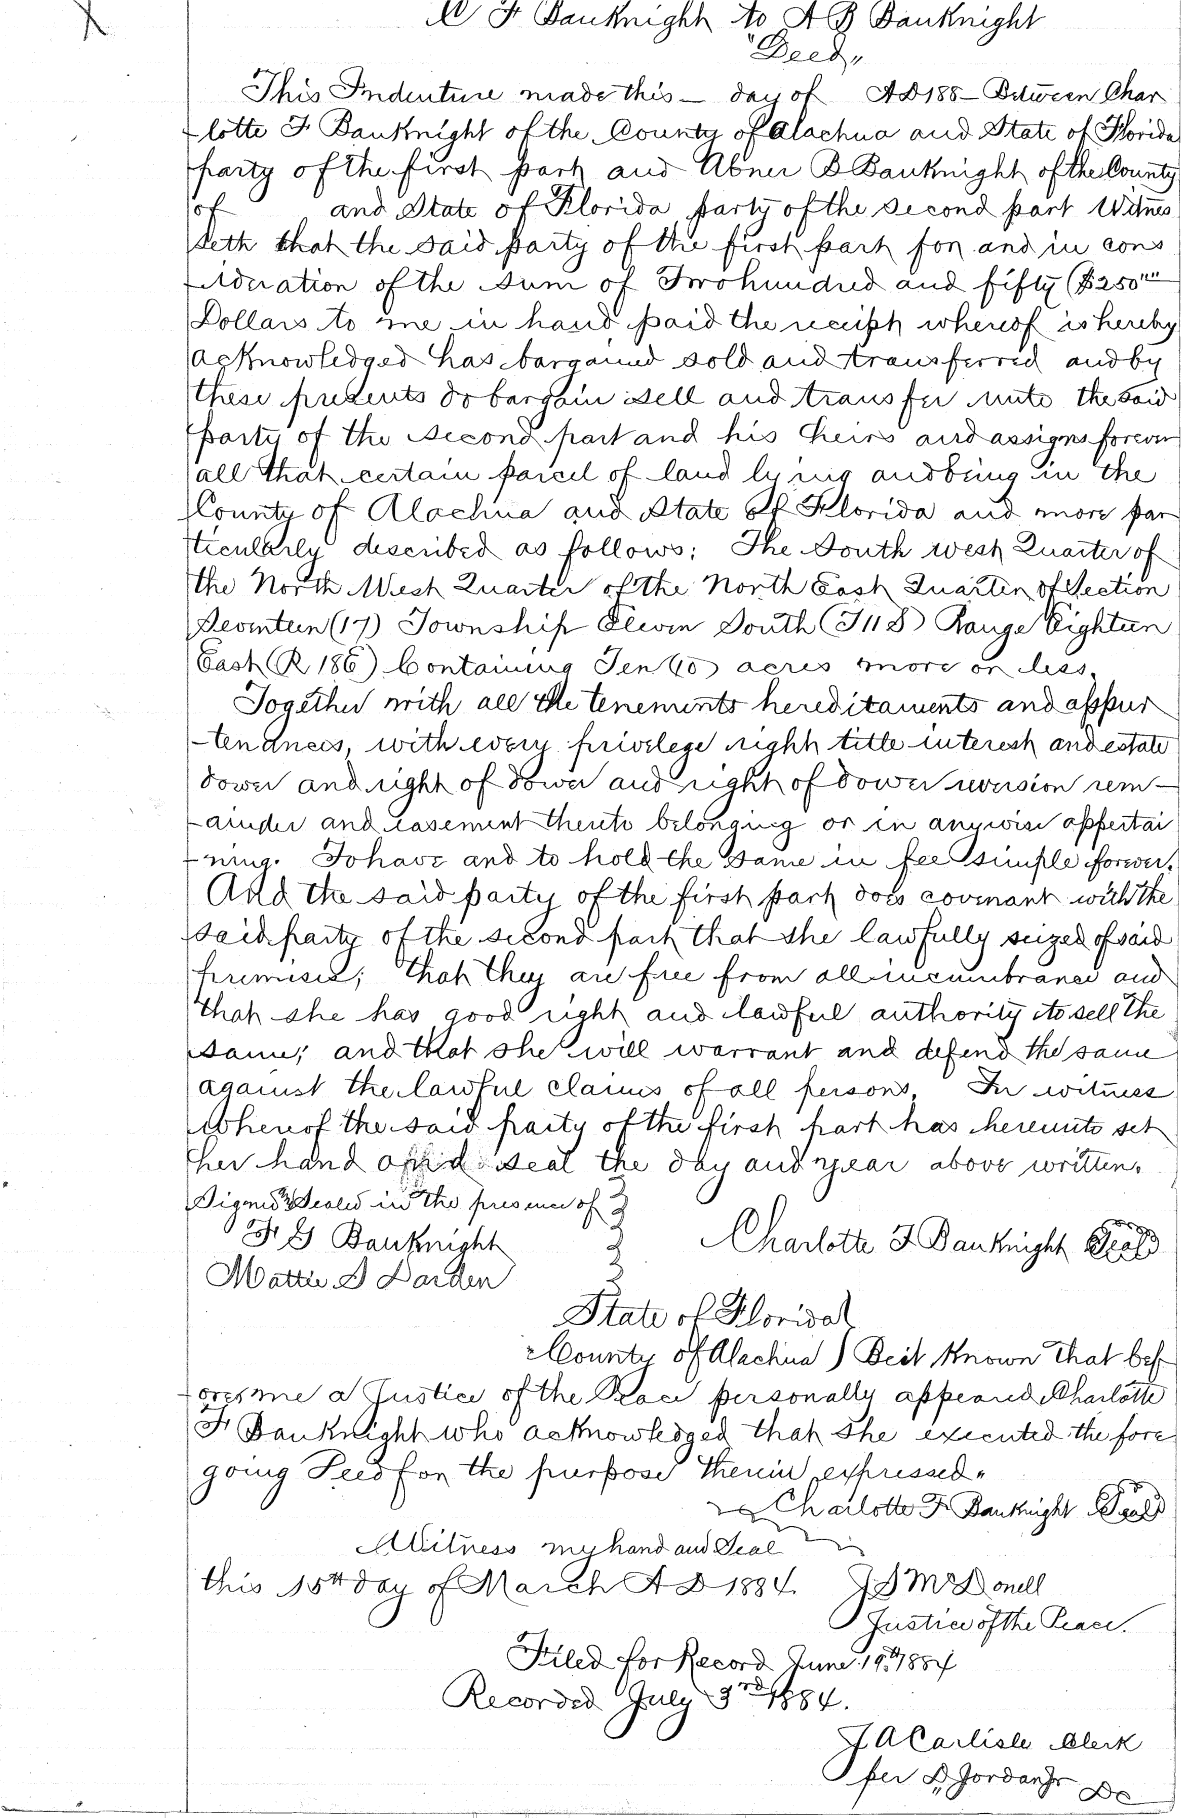 C F Bauknight to A B Bauknight
"Deed"
This Indenture made this - day of AD188- Between Char
lotte F Bauknight of the County of Alachua and State of Florida
party of the first part and Abner B Bauknight of the County
of and State of Florida party of the second part Witnes
seth that the said party of the first part for and in cons
ideration of the sum of Two hundred and fifty ($250°°
Dollars to me in hand paid the receipt whereof is hereby
acknowledged has bargained sold and transferred and by
these presents do bargain sell and transfer unto the said
party of the second part and his heirs and assigns forever
all that certain parcel of land lying and being in the
County of Alachua and State of Florida and more par
ticularly described as follows: The South west Quarter of
the North West Quarter of the North East Quarter of Section
Seventeen (17) Township Eleven South (T11S) Range Eighteen
East (R 18E) Containing Ten (10) acres more or less.
Together with all the tenements hereditaments and appur
-tenances, with every privelege right title interest and estate
dower and right of dower and right of dower reversion rem-
-ainder and easement thereto belonging or in anywise appertai
-ning. To have and to hold the same in fee simple forever.
And the said party of the first part does covenant with the
said party of the second part that she lawfully seized of said
premises; that they are free from all incumbrance and
that she has good right and lawful authority to sell the
same; and that she will warrant and defend the same
against the lawful claims of all persons. In witness
whereof the said party of the first part has hereunto set
her hand and seal the day and year above written.
Signed & Sealed in the presence of
F G Bauknight Charlotte F Bauknight Seal
Mattie S Darden
State of Florida
County of Alachua } Be it Known that bef
ore me a Justice of the Peace personally appeared Charlotte
F Bauknight who acknowledged that she executed the fore
going Deed for the purpose therein expressed.
Charlotte F Bauknight Seal
Witness my hand and Seal
this 15th day of March A D 1884. J D McDonell
Justice of the Peace.
Filed for Record June 19th 1884
Recorded July 3rd 1884.
J A Carlisle Clerk
per D Jordan Jr DC